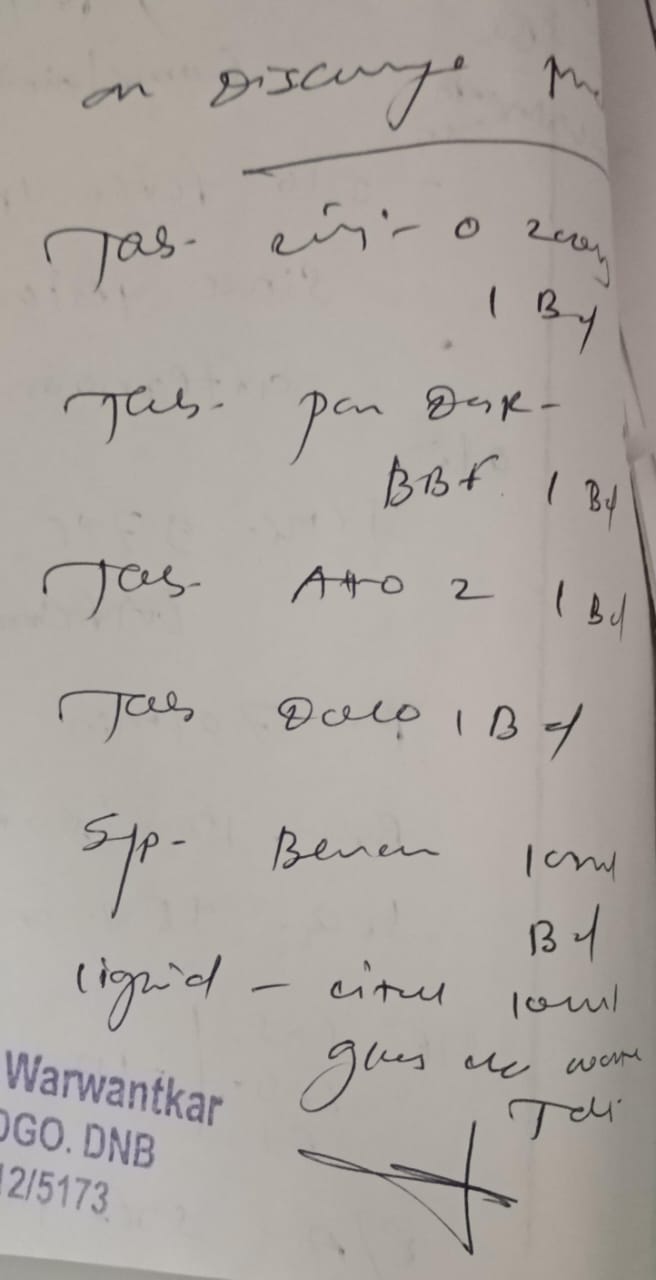 on Discharge
Tab- Zifi - O 200mg
1 Bd
Tab- pan DSR -
BBF 1 Bd
Tab- A to Z 1 Bd
Tab Dolo 1 Bd
Syp- 10ml
Bd
liquid - citral 10ml
glass of water
Tds
Warwantkar
DGO. DNB
12/5173